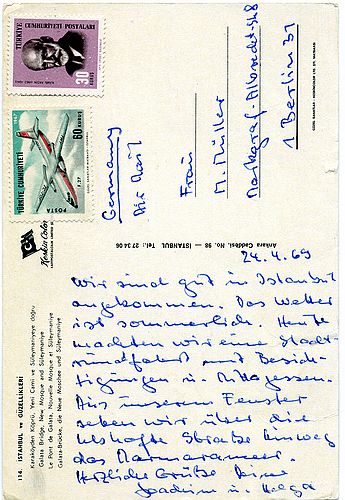 TÜRKİYE
CUMHURİYETİ POSTALARI
30
KURUŞ
1967
60 KURUŞ
TÜRKİYE CUMHURİYETİ
POSTA
F.27
Germany
Air Mail
Frau
M. Müller
Markgraf-Albrecht-Str 8
1 Berlin 31
Keskin Color
Ankara Caddesi, No. 98 - İSTANBUL Tel.: 27 34 06
114. İSTANBUL ve GÜZELLİKLERİ
Karaköyden Köprü, Yeni Cami ve Süleymaniyeye doğru
Galata Bridge, New Mosque and Süleymaniye
Le Pont de Galata, Nouvelle Mosque et Süleymaniye
Galata-Brücke, die Neue Moschee und Süleymaniye
24.4.69
Wir sind gut in Istanbul
angekommen. Das Wetter
ist sommerlich. Heute
machten wir eine Stadt-
rundfahrt mit Besich-
tigungen u. Mittagessen.
Aus unserem Fenster
sehen wir über die
lebhafte Straße hinweg
das Marmarameer.
Herzliche Grüße Deine
Joachim u. Helga